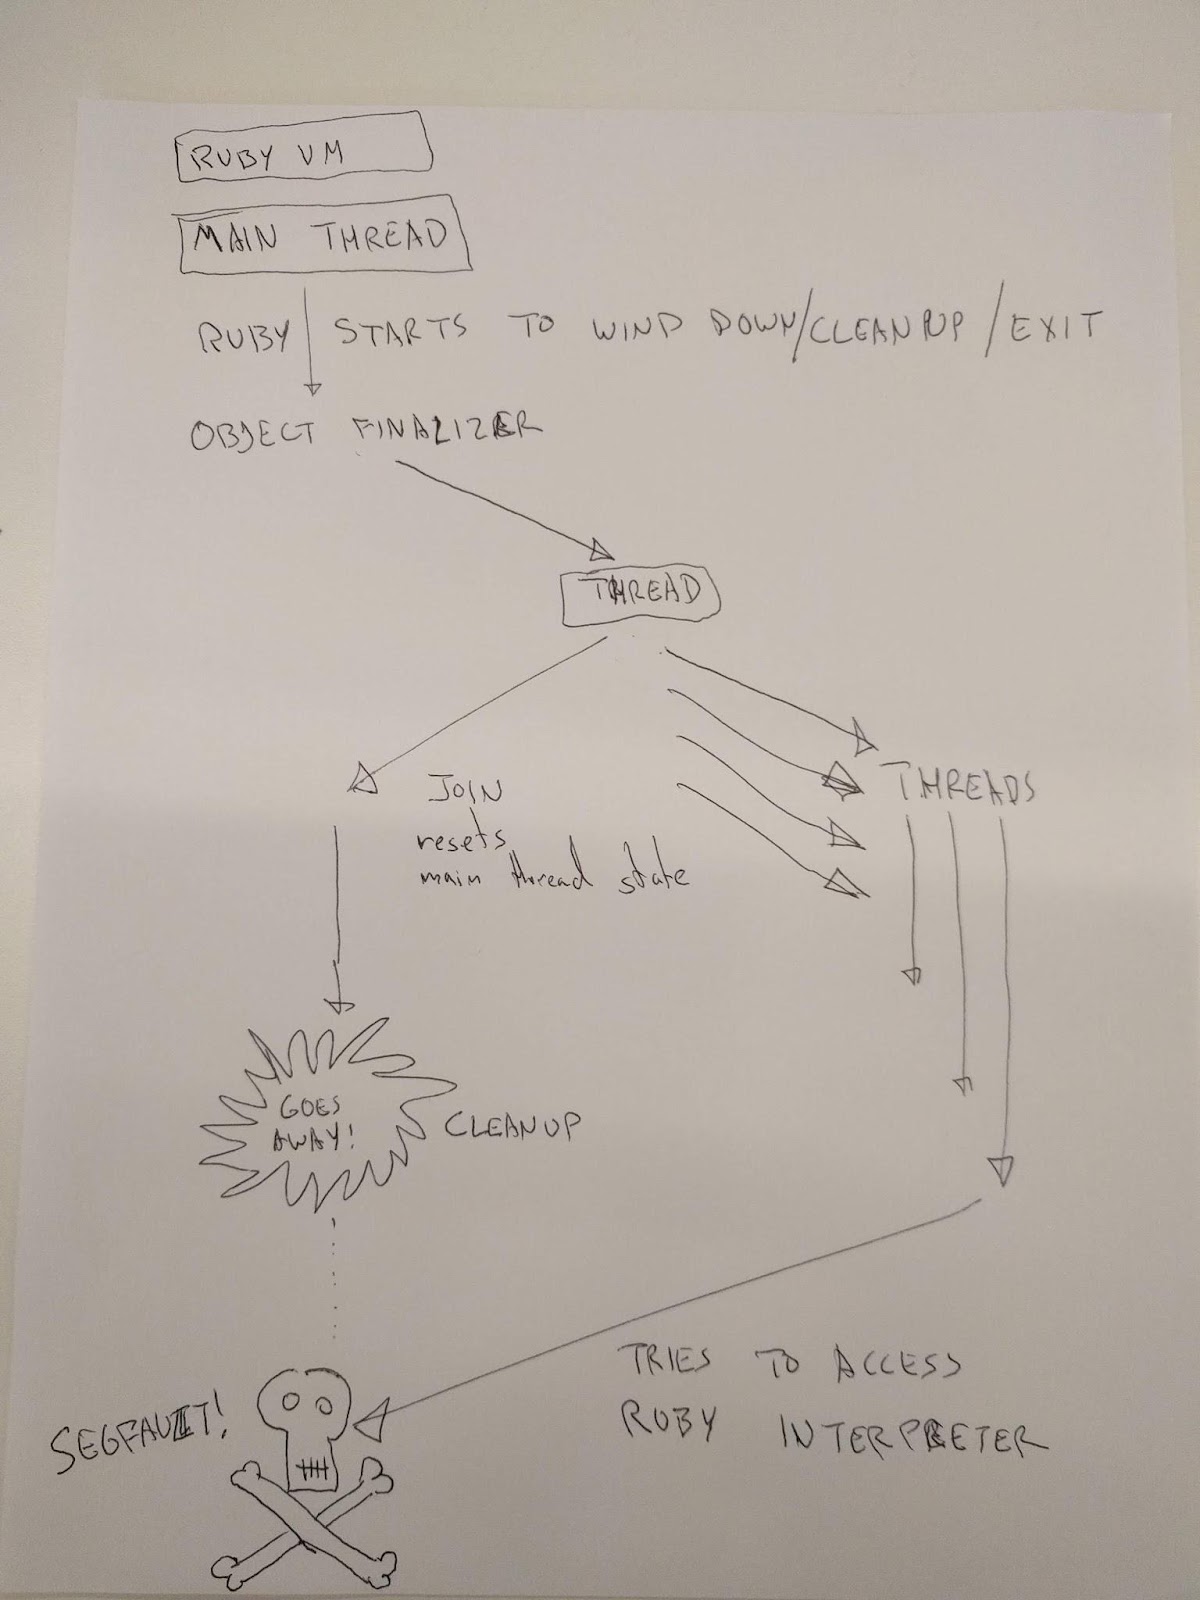 RUBY VM
MAIN THREAD
RUBY STARTS TO WIND DOWN/CLEANUP/EXIT
OBJECT FINALIZER
THREAD
THREADS
JOIN
resets
main thread state
GOES
AWAY!
CLEANUP
TRIES TO ACCESS
RUBY INTERPRETER
SEGFAULT!